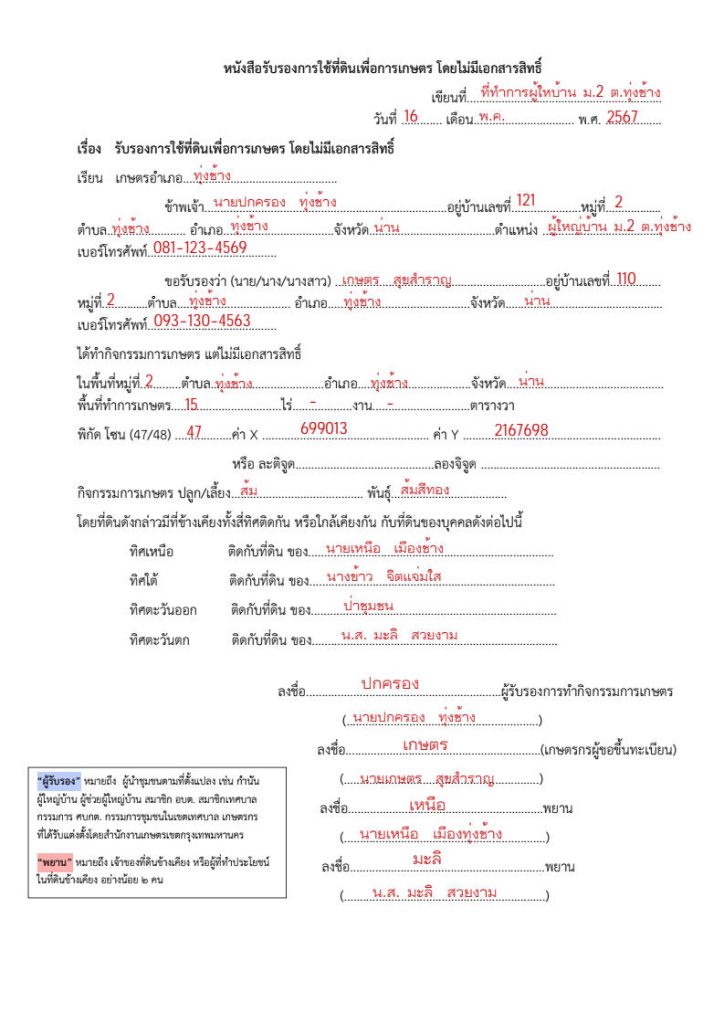 หนังสือรับรองการใช้ที่ดินเพื่อการเกษตร โดยไม่มีเอกสารสิทธิ์
เขียนที่ ที่ทำการผู้ใหบ้าน ม.2 ต.ทุ่งช้าง
วันที่ 16 เดือน พ.ค. พ.ศ. 2567
เรื่อง รับรองการใช้ที่ดินเพื่อการเกษตร โดยไม่มีเอกสารสิทธิ์
เรียน เกษตรอำเภอ ทุ่งช้าง
ข้าพเจ้า นายปกครอง ทุ่งช้าง อยู่บ้านเลขที่ 121 หมู่ที่ 2
ตำบล ทุ่งช้าง อำเภอ ทุ่งช้าง จังหวัด น่าน ตำแหน่ง ผู้ใหญ่บ้าน ม.2 ต.ทุ่งช้าง
เบอร์โทรศัพท์ 081-123-4569
ขอรับรองว่า (นาย/นาง/นางสาว) เกษตร สุขสำราญ อยู่บ้านเลขที่ 110
หมู่ที่ 2 ตำบล ทุ่งช้าง อำเภอ ทุ่งช้าง จังหวัด น่าน
เบอร์โทรศัพท์ 093-130-4563
ได้ทำกิจกรรมการเกษตร แต่ไม่มีเอกสารสิทธิ์
ในพื้นที่หมู่ที่ 2 ตำบล ทุ่งช้าง อำเภอ ทุ่งช้าง จังหวัด น่าน
พื้นที่ทำการเกษตร 15 ไร่ - งาน - ตารางวา
พิกัด โซน (47/48) 47 ค่า X 699013 ค่า Y 2167698
หรือ ละติจูด ลองจิจูด
กิจกรรมการเกษตร ปลูก/เลี้ยง ส้ม พันธุ์ ส้มสีทอง
โดยที่ดินดังกล่าวมีที่ข้างเคียงทั้งสี่ทิศติดกัน หรือใกล้เคียงกัน กับที่ดินของบุคคลดังต่อไปนี้
ทิศเหนือ ติดกับที่ดิน ของ นายเหนือ เมืองช้าง
ทิศใต้ ติดกับที่ดิน ของ นางข้าว จิตแจ่มใส
ทิศตะวันออก ติดกับที่ดิน ของ ป่าชุมชน
ทิศตะวันตก ติดกับที่ดิน ของ น.ส. มะลิ สวยงาม
ลงชื่อ ปกครอง ผู้รับรองการทำกิจกรรมการเกษตร
( นายปกครอง ทุ่งช้าง )
ลงชื่อ เกษตร (เกษตรกรผู้ขอขึ้นทะเบียน)
( นายเกษตร สุขสำราญ )
ลงชื่อ เหนือ พยาน
( นายเหนือ เมืองทุ่งช้าง )
ลงชื่อ มะลิ พยาน
( น.ส. มะลิ สวยงาม )
"ผู้รับรอง" หมายถึง ผู้นำชุมชนตามที่ตั้งแปลง เช่น กำนัน
ผู้ใหญ่บ้าน ผู้ช่วยผู้ใหญ่บ้าน สมาชิก อบต. สมาชิกเทศบาล
กรรมการ ศบกต. กรรมการชุมชนในเขตเทศบาล เกษตรกร
ที่ได้รับแต่งตั้งโดยสำนักงานเกษตรเขตกรุงเทพมหานคร
"พยาน" หมายถึง เจ้าของที่ดินข้างเคียง หรือผู้ที่ทำประโยชน์
ในที่ดินข้างเคียง อย่างน้อย ๒ คน